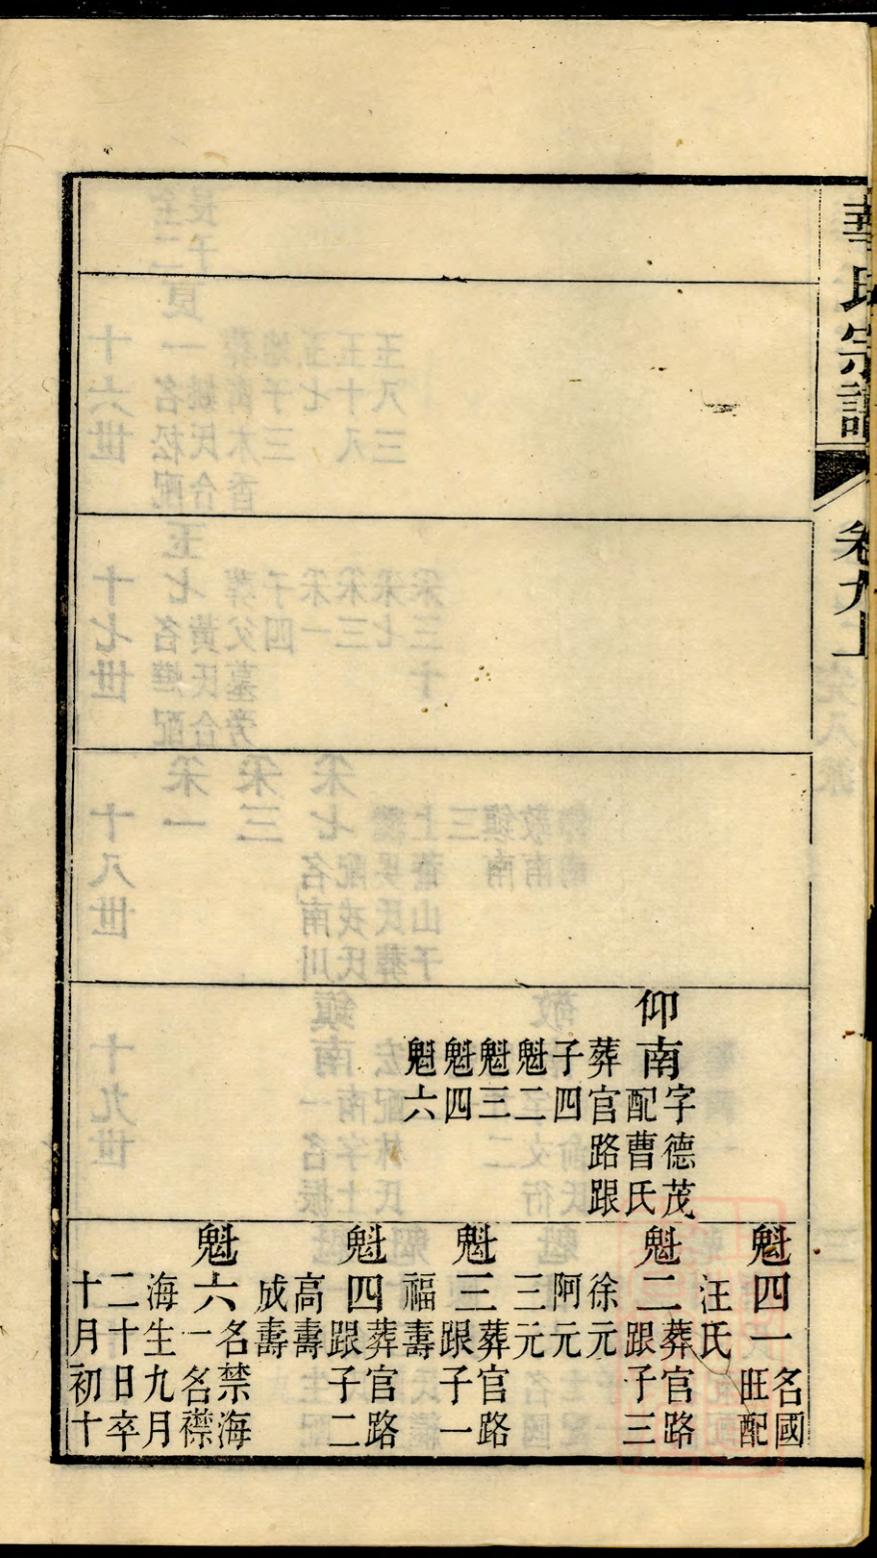 華氏宗譜
卷九上
仰南字德茂
配曹氏
葬官路跟
子四
魁二
魁三
魁四
魁六
魁四一名國
旺配
汪氏
魁二葬官路
跟子三
徐元
阿元
三元
魁三葬官路
跟子一
福壽
魁四葬官路
跟子二
高壽
成壽
魁六名禁海
一名襟
海生九月
二十日卒
十月初十